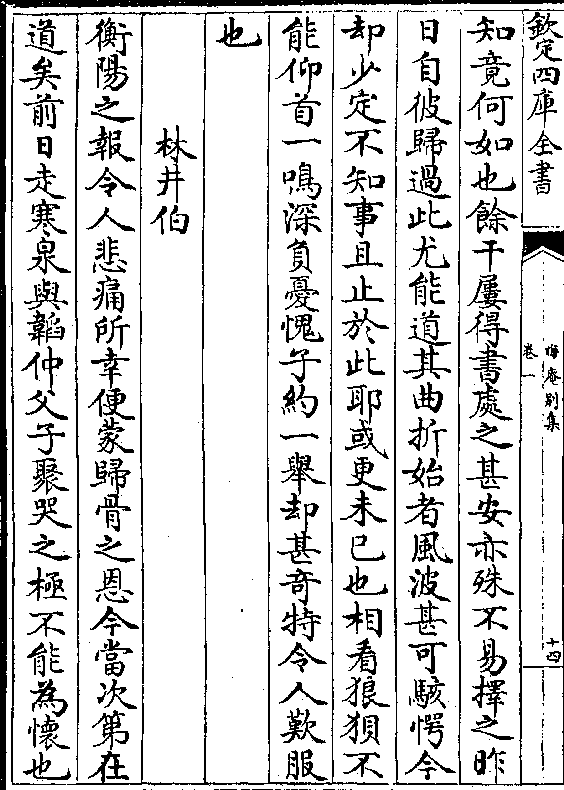 欽定四庫全書
晦庵別集
卷一
十四
知竟何如也餘干屢得書處之甚安亦殊不易擇之昨
日自彼歸過此尤能道其曲折始者風波甚可駭愕今
却少定不知事且止於此耶或更未已也相看狼狽不
能仰首一鳴深負憂愧子約一舉却甚奇特令人歎服
也
林井伯
衡陽之報令人悲痛所幸便蒙歸骨之恩今當次第在
道矣前日走寒泉與韜仲父子聚哭之極不能為懷也